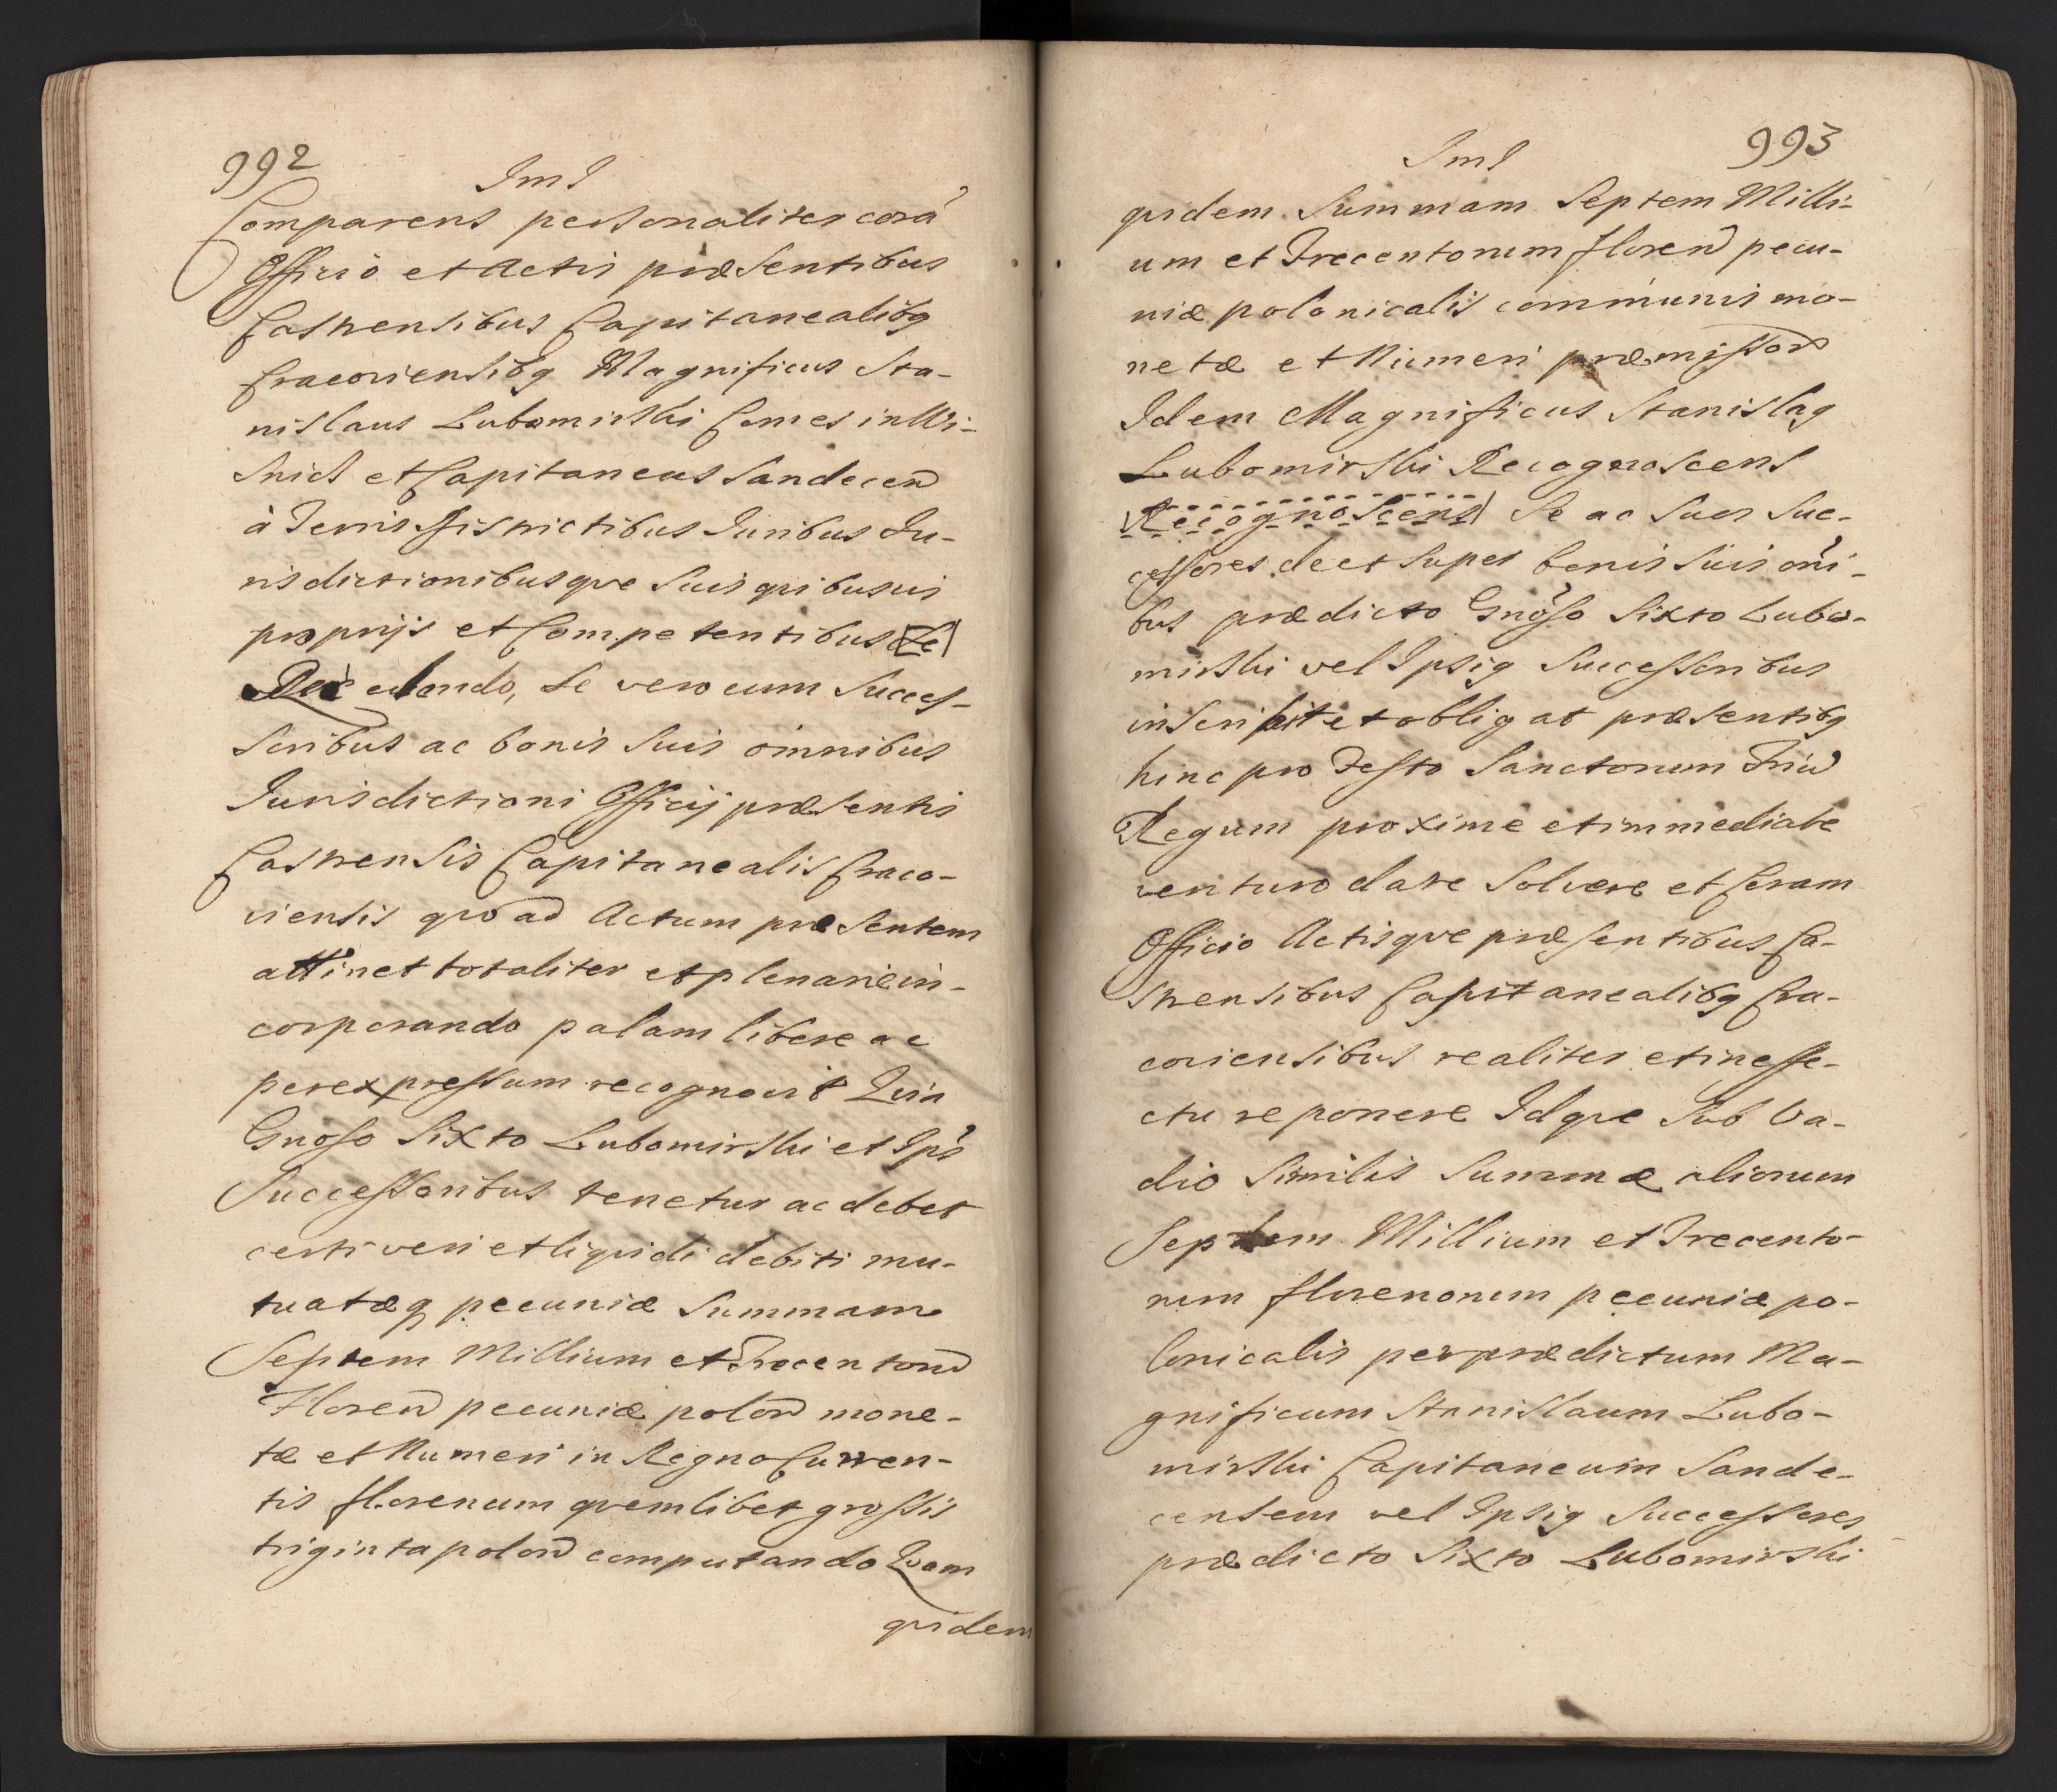 992
Iml
Comparens personaliter corã
Officio et Actis præsentibus
Castrensibus Capitanealibq
Cracoviensibq Magnificus Sta-
nislaus Lubomirski Comes in Wi-
snicz et Capitaneus Sandecen
à Terris Districtibus Iuribus Iu-
risdictionibusque suis quibusvis
proprijs et Competentibus Se
Recedendo, Se vero cum Succes-
soribus ac bonis suis omnibus
Iurisdictioni Officij præsentis
Castrensis Capitanealis Craco-
viensis quoad Actum præsentem
attinet totaliter et plenarie in-
corporando palam libere ac
per expressum recognovit Quia
Gnoso Sixto Lubomirski et Ips
Successoribus tenetur ac debet
certi veri et liquidi debiti mu-
tuatæq pecuniæ Summam
Septem Millium et Trecentorũ
Floren pecuniæ polon mone-
tæ et Numeri in Regno Curren-
tis florenum quemlibet grossis
triginta polon computando Quam
quidem
Iml
993
quidem Summam Septem Milli-
um et Trecentorum floren pecu-
niæ polonicalis communis mo-
netæ et Numeri præmissor
Idem Magnificus Stanislaq
Lubomirski Recognoscens
Recognoscens Se ac suos Suc-
cessores de et super bonis suis oñi-
bus prædicto Gnoso Sixto Lubo-
mirski vel Ipsiq Successoribus
inscribit et obligat præsentibq
hinc pro Festo Sanctorum Triũ
Regum proxime et immediate
venturo dare Solvere et Coram
Officio Actisque præsentibus Ca-
strensibus Capitanealibq Cra-
coviensibus realiter et in effe-
ctu reponere Idque Sub Va-
dio Similis Summæ aliorum
Septem Millium et Trecento-
rum florenorum pecuniæ po-
lonicalis per prædictum Ma-
gnificum Stanislaum Lubo-
mirski Capitaneum Sande-
censem vel Ipsiq Successores
prædicto Sixto Lubomirski